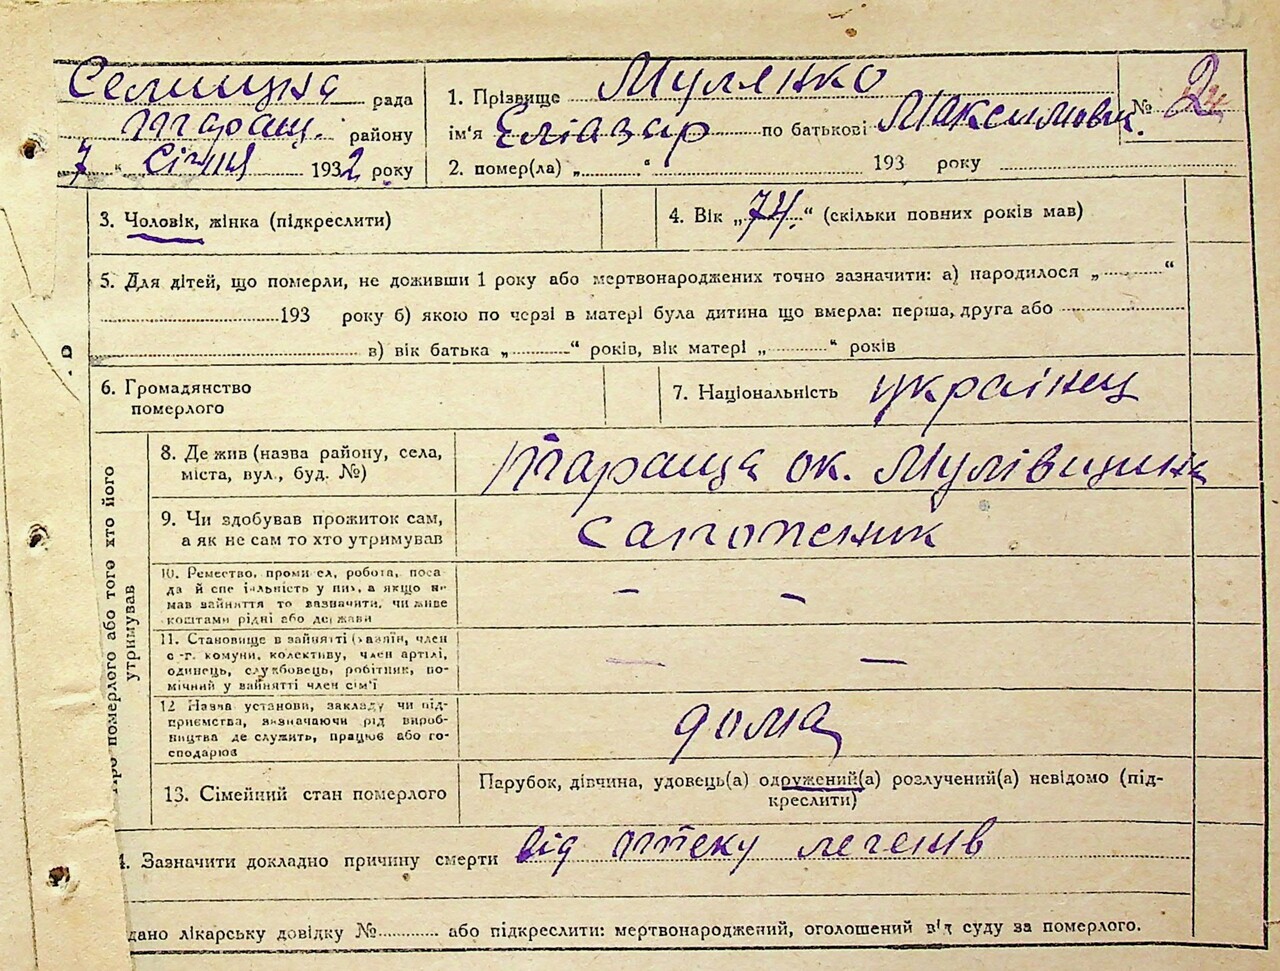 Селищна рада
Таращ. району
7 " січня 1932 року
1. Прізвище Мулянко № 2
ім'я Еліазар по батькові Максимович.
2. помер(ла) „ " 193 року
3. Чоловік, жінка (підкреслити)
4. Вік „74" (скільки повних років мав)
5. Для дітей, що померли, не доживши 1 року або мертвонароджених точно зазначити: а) народилося „ "
193 року б) якою по черзі в матері була дитина що вмерла: перша, друга або
в) вік батька „ " років, вік матері „ " років
6. Громадянство
померлого
7. Національність українец
померлого або того хто його
утримував
8. Де жив (назва району, села,
міста, вул., буд. №)
Тараща ок. Мулівщина
9. Чи здобував прожиток сам,
а як не сам то хто утримував
10. Ремество, проми сл, робота, поса
да й спе іяльність у них, а якщо не
мав вайняття то вазначити, чи живе
коштами рідні або держави
- -
11. Становище в зайнятті (хазяїн, член
с.-г. комуни, колективу, член артілі,
одинець, службовець, робітник, по-
мічний у вайнятті член сім'ї
— —
12 Назва установи, закладу чи під-
приємства, визначаючи рід вироб-
ництва де служить, працює або го-
сподарює
дома
13. Сімейний стан померлого
Парубок, дівчина, удовець(а) одружений(а) розлучений(а) невідомо (під-
креслити)
Зазначити докладно причину смерти від отёку легенів
дано лікарську довідку № або підкреслити: мертвонароджений, оголошений від суду за померлого.